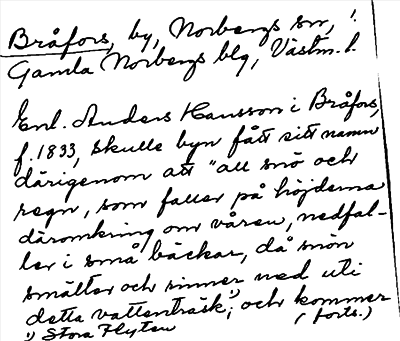 Bråfors, by, Norbergs sn,
Gamla Norbergs blg, Västm. l.
Enl. Anders Hansson i Bråfors,
f. 1833, skulle byn fått sitt namn
därigenom att "all snö och
regn, som faller på höjderna
däromkring om våren, nedfal-
ler i små bäckar, då snön
smälter och rinner ned uti
detta vattenträsk¹⁾, och kommer
1) Stora Flyten (forts.)